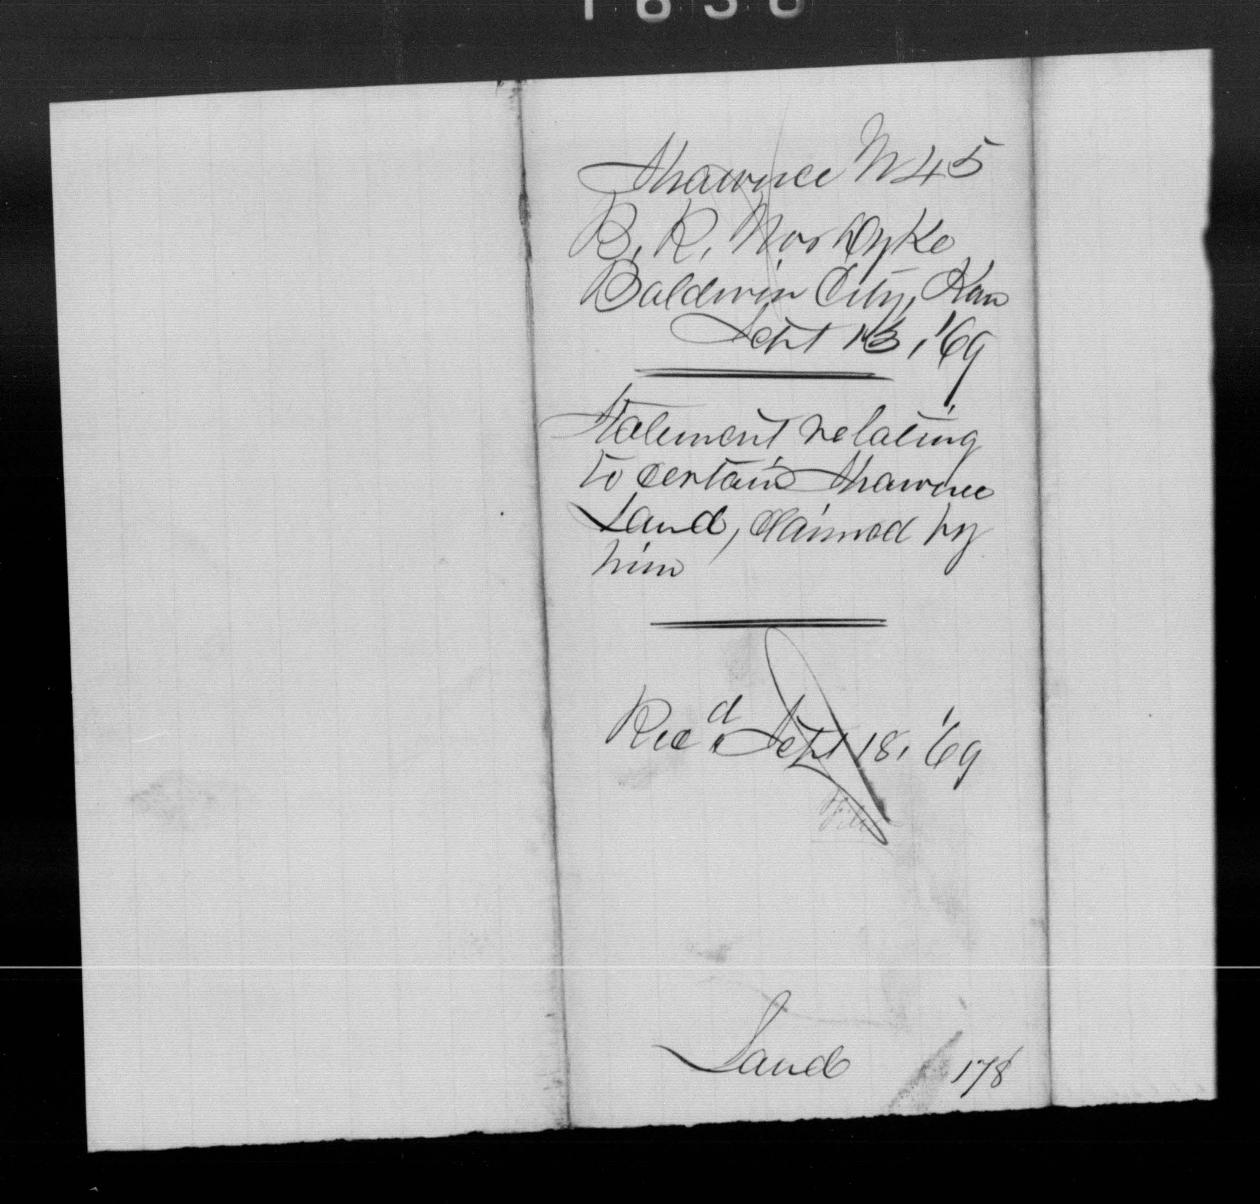 Shawnee N 45
B. R. Nordyke
Baldwin City, Kan
Sept 13, '69
Statement relating
to certain Shawnee
Land, claimed by
him
Recd, Sept 18, '69
File
Land 178